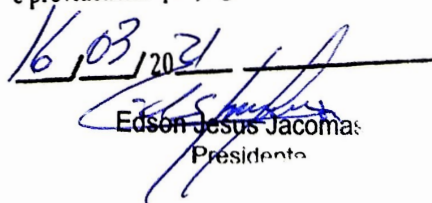 16 / 03 / 2021
Edson Jesus Jacomas
Presidente